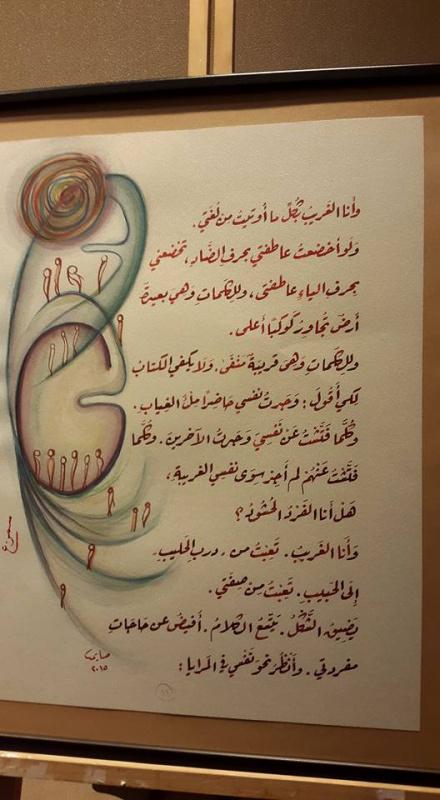 وأنا الغَريبُ بكُلِّ ما أُوتيتُ من لُغَتي.
ولو أخضعتُ عاطفتي بحرف الضَّاد، تخضعني
بحرف الياء عاطفتي، وللكلمات وهي بعيدةٌ
أرضٌ تُجاورُ كوكباً أعلى.
وللكلمات وهي قريبةٌ منفى. ولا يكفي الكتابُ
لكي أقول: وجدتُ نفسي حاضراً مِلْءَ الغياب.
وكُلَّما فَتَّشْتُ عن نفسي وجدتُ الآخرين. وكُلَّما
فتَّشْتُ عَنْهُمْ لم أجد سوى نفسي الغريبةِ،
هل أنا الفَرْدُ الحُشُودُ؟
وأنا الغريبُ. تَعِبْتُ من. درب الحليب.
إلى الحبيب. تعبتُ من صِفَتي.
يضيقُ الشَّكْلُ. يتّسعُ الكلامُ. أفيضُ عن حاجات
مفردتي. وأَنْظُرُ نحو نفسي في المرايا:
٢٠١٥